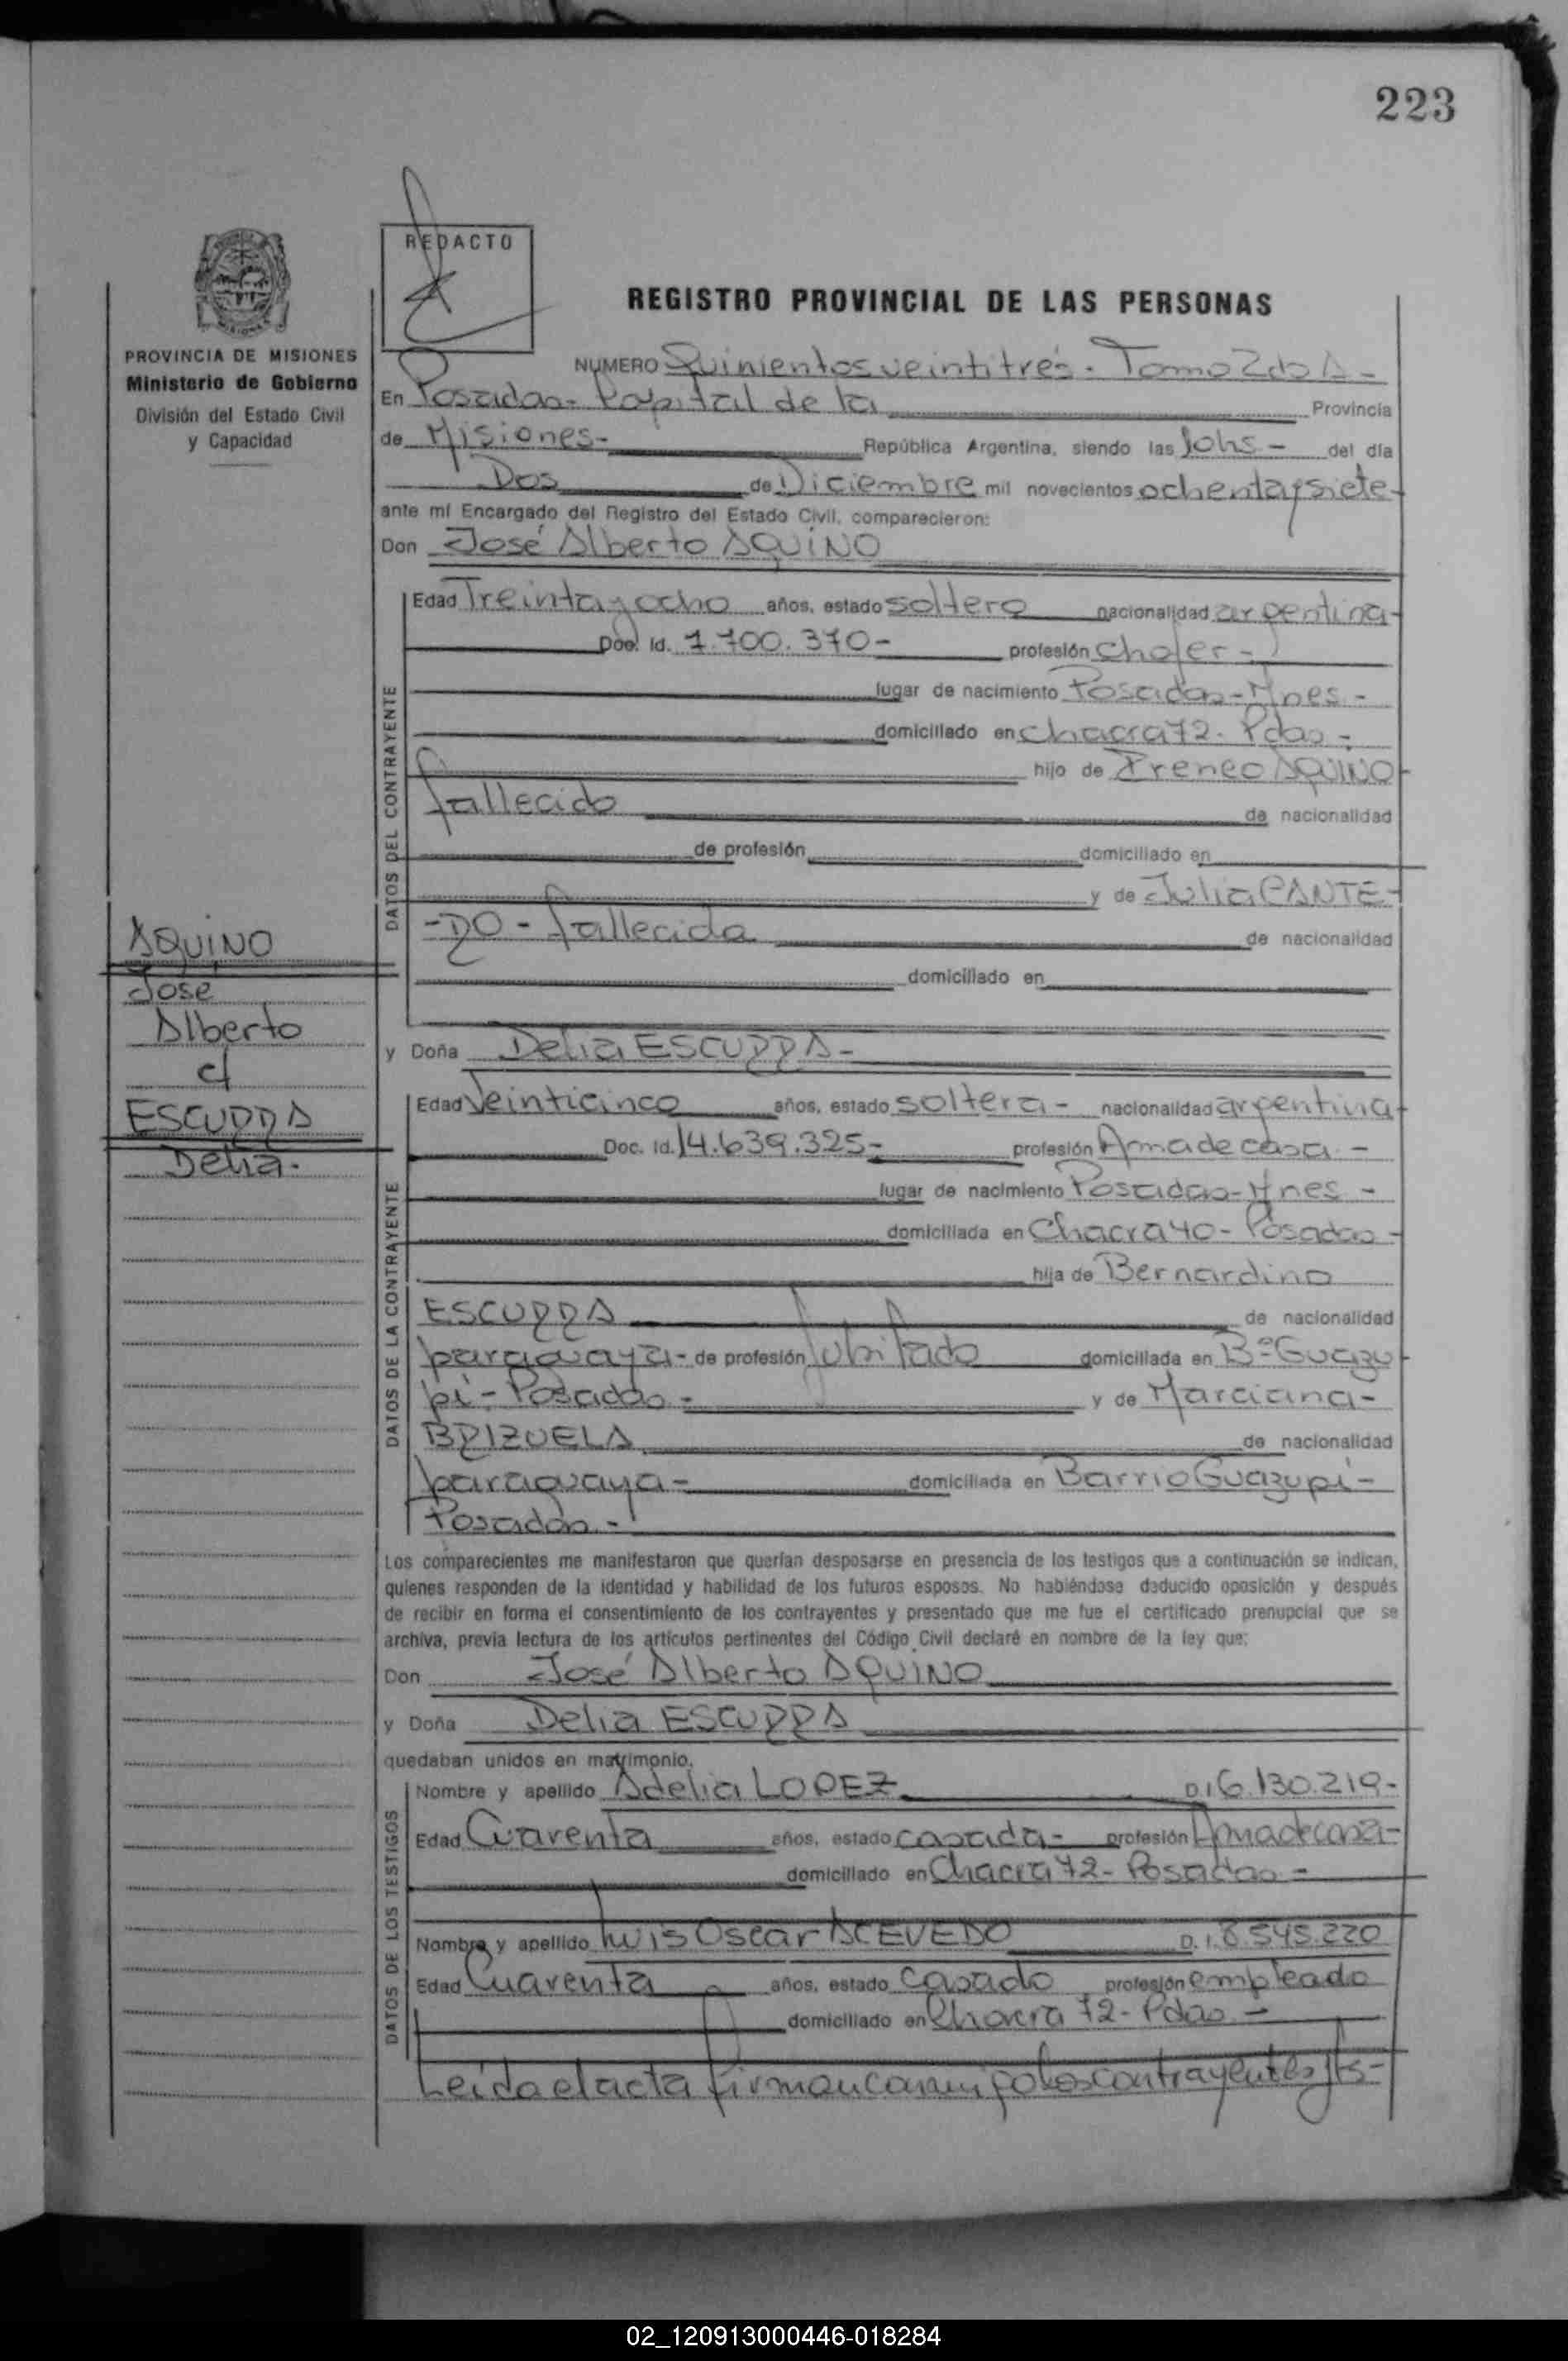 223
REDACTO
REGISTRO PROVINCIAL DE LAS PERSONAS
PROVINCIA DE MISIONES
Ministerio de Gobierno
División del Estado Civil
y Capacidad
NUMERO Quinientos veintitrés - Tomo 2do A -
En Posadas - Capital de la Provincia
de Misiones - República Argentina, siendo las 10hs - del día
Dos de Diciembre mil novecientos ochenta y siete -
ante mí Encargado del Registro del Estado Civil, comparecieron:
Don José Alberto AQUINO
DATOS DEL CONTRAYENTE
Edad Treinta y ocho años, estado soltero nacionalidad argentina -
Doc. Id. 7.700.370 - profesión Chofer -
lugar de nacimiento Posadas - Mnes -
domiciliado en Chacra 72 - Pdas -
hijo de Ireneo AQUINO -
fallecido de nacionalidad
de profesión domiciliado en
y de Julia CANTE -
- RO - fallecida de nacionalidad
domiciliado en
AQUINO
José
Alberto
c/
ESCURRA
Delia -
y Doña Delia ESCURRA -
DATOS DE LA CONTRAYENTE
Edad Veinticinco años, estado soltera - nacionalidad argentina -
Doc. Id. 14.639.325 - profesión Ama de casa -
lugar de nacimiento Posadas - Mnes -
domiciliada en Chacra 40 - Posadas -
hija de Bernardino
ESCURRA de nacionalidad
paraguaya - de profesión jubilado domiciliada en Bº Guazu
pí - Posadas - y de Marciana -
BRIZUELA de nacionalidad
paraguaya - domiciliada en Barrio Guazupí -
Posadas -
Los comparecientes me manifestaron que querían desposarse en presencia de los testigos que a continuación se indican,
quienes responden de la identidad y habilidad de los futuros esposos. No habiéndose deducido oposición y después
de recibir en forma el consentimiento de los contrayentes y presentado que me fue el certificado prenupcial que se
archiva, previa lectura de los artículos pertinentes del Código Civil declaré en nombre de la ley que:
Don José Alberto AQUINO
y Doña Delia ESCURRA
quedaban unidos en matrimonio.
DATOS DE LOS TESTIGOS
Nombre y apellido Adelia LOPEZ D.I 6.130.219 -
Edad Cuarenta años, estado casada - profesión Ama de casa -
domiciliado en Chacra 72 - Posadas -
Nombre y apellido Luis Oscar ACEVEDO D.I. 8.545.220
Edad Cuarenta años, estado casado profesión empleado
domiciliado en Chacra 72 - Pdas -
Leída el acta firman conmigo los contrayentes y ts -
02_120913000446-018284